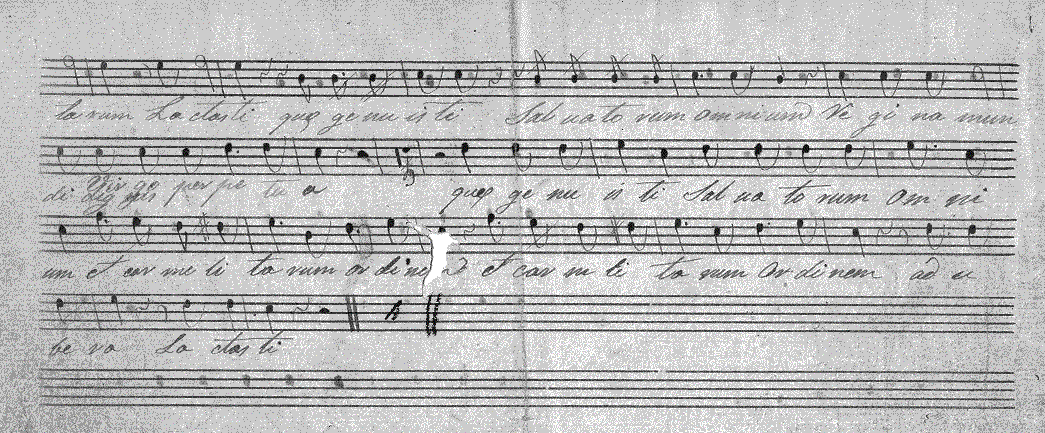 ta rum La ctasti quę ge nu is ti Sal ua to rum om ni um Vi gi na mun
Vir go per pe tu a
di dig nis quę ge nu is ti Sal ua to rum Om ni
um et car me li ta rum or di nem et car me li ta rum Or di nem ad u
be ra La ctas ti